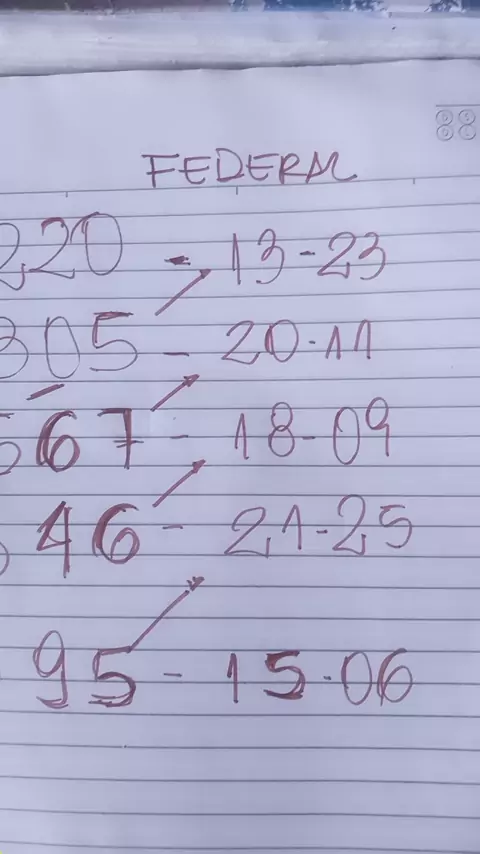 FEDERAL
220 - 13-23
305 - 20-11
567 - 18-09
46 - 21-25
95 - 15-06